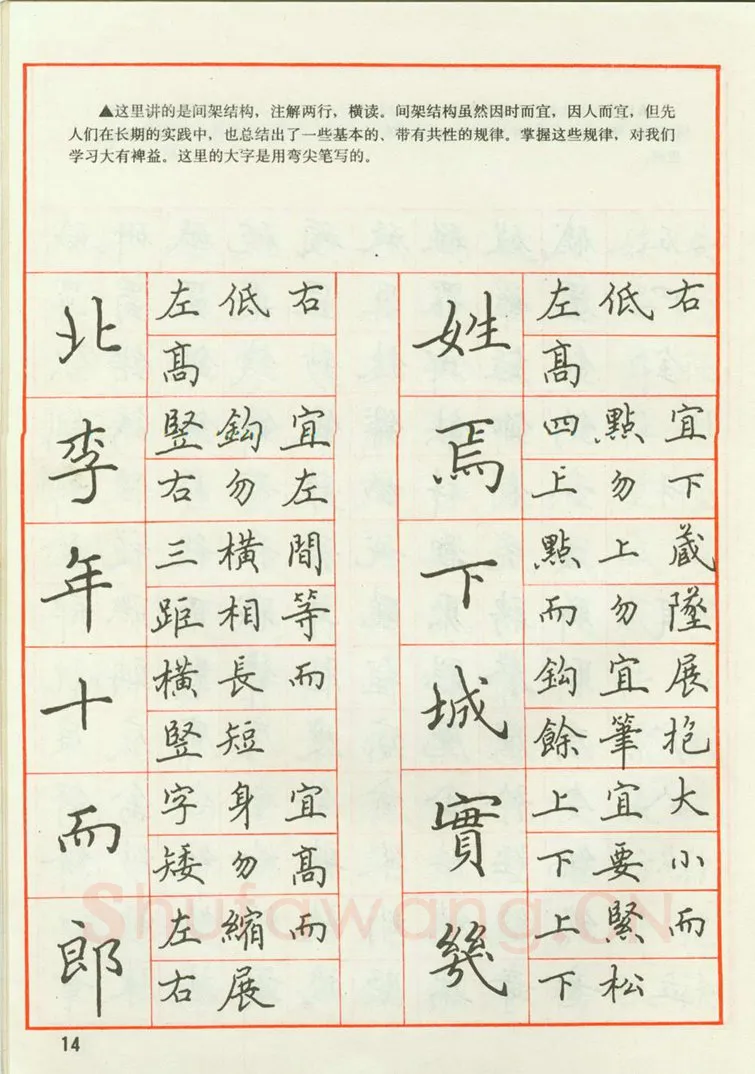 ▲这里讲的是间架结构，注解两行，横读。间架结构虽然因时而宜，因人而宜，但先
人们在长期的实践中，也总结出了一些基本的、带有共性的规律。掌握这些规律，对我们
学习大有裨益。这里的大字是用弯尖笔写的。
北
左低右
高
李
竖鈎宜
右勿左
年
三橫間
距相等
十
橫長而
竖短
而
字身宜
矮勿高
郎
左縮而
右展
姓
左低右
高
焉
四點宜
上勿下
下
點上藏
而勿墜
城
鈎宜展
餘筆抱
實
上宜大
下要小
幾
上緊而
下松
Shufawang.CN
14